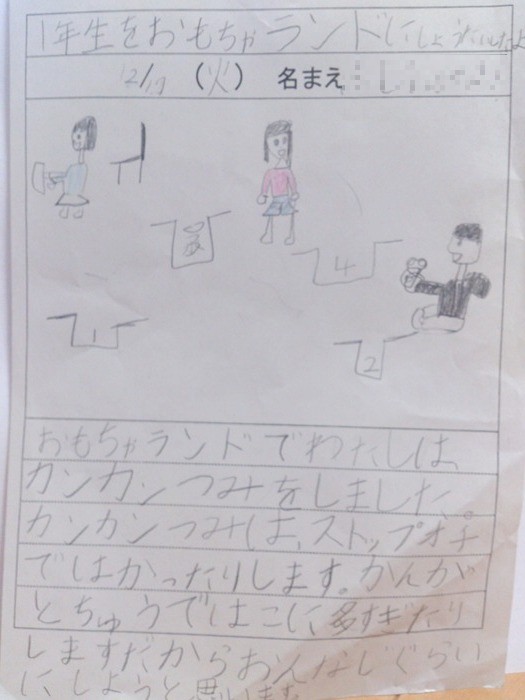 1年生をおもちゃランドにしょうたいしたよ
12/19 (火) 名まえ
3
4
1
2
おもちゃランドでわたしは、
カンカンつみをしました。
カンカンつみは、ストップオチ
ではかったりします。かんが
とちゅうではこに多すぎたり
しますだからおんなじぐらい
にしようと思います